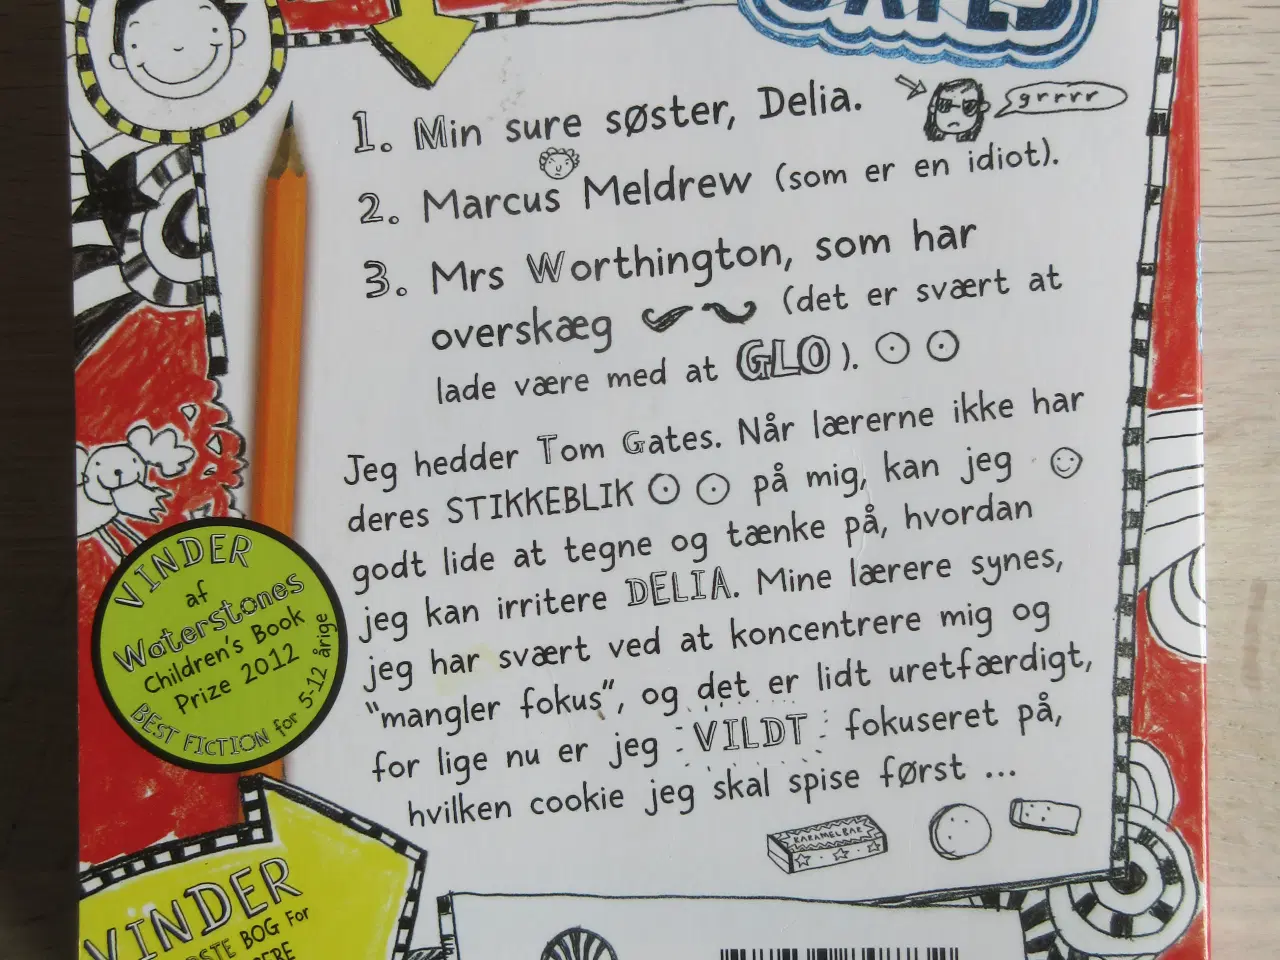 GATES
1. Min sure søster, Delia.
grrrr
2. Marcus Meldrew (som er en idiot).
3. Mrs Worthington, som har
overskæg (det er svært at
lade være med at GLO).
Jeg hedder Tom Gates. Når lærerne ikke har
deres STIKKEBLIK på mig, kan jeg
godt lide at tegne og tænke på, hvordan
jeg kan irritere DELIA. Mine lærere synes,
jeg har svært ved at koncentrere mig og
“mangler fokus”, og det er lidt uretfærdigt,
for lige nu er jeg VILDT fokuseret på,
hvilken cookie jeg skal spise først ...
KARAMELBAR
VINDER
af
Waterstones
Children's Book
Prize 2012
BEST FICTION for 5-12 årige
VINDER
BOG For